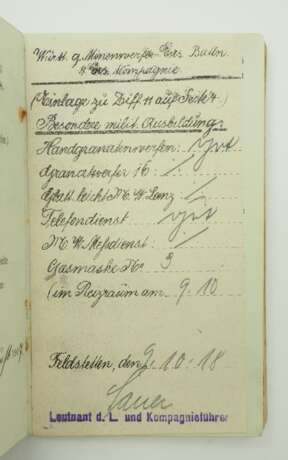 Württ. g. Minenwerfer Ers. Batln.
Kompagnie
(Einlage zu Ziff. 11 auf Seite 4.)
Besondere milit. Ausbildung:
Handgranatenwerfen: gut
Granatwerfer 16
leicht M.W. Lanz
Telefondienst gut
M.W. Meßdienst
Gasmaske No 3
(im Reizraum am 9.10
Feldstetten, den 2.10.18
Sauer
Leutnant d. L. und Kompagnieführer